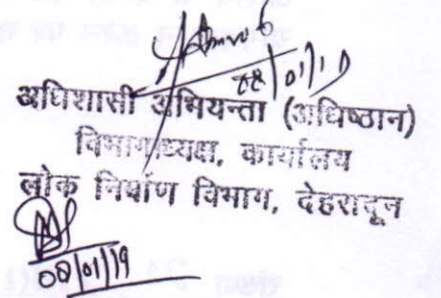 अधिशासी अभियन्ता (अधिष्ठान)
विभागाध्यक्ष, कार्यालय
लोक निर्माण विभाग, देहरादून
08/01/19